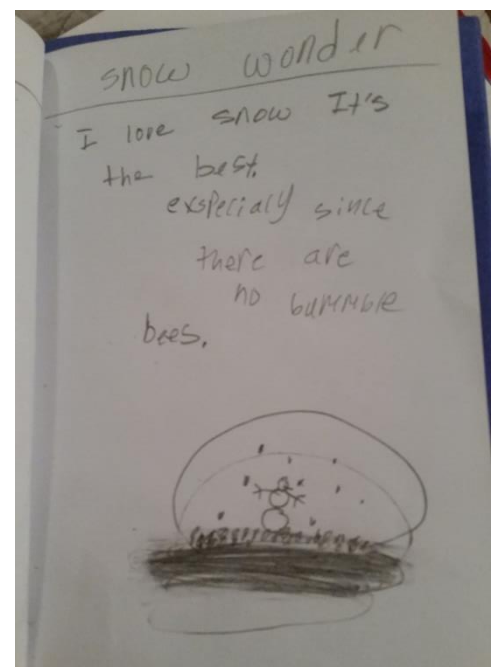 snow wonder
I love snow It's
the best.
exspecialy since
there are
no bummble
bees.